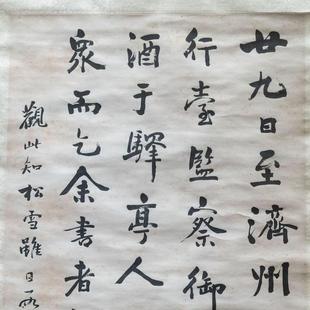 廿九日至濟州
行臺監察御
酒于驛亭人
衆而乞余書者
觀此知松雪雖日